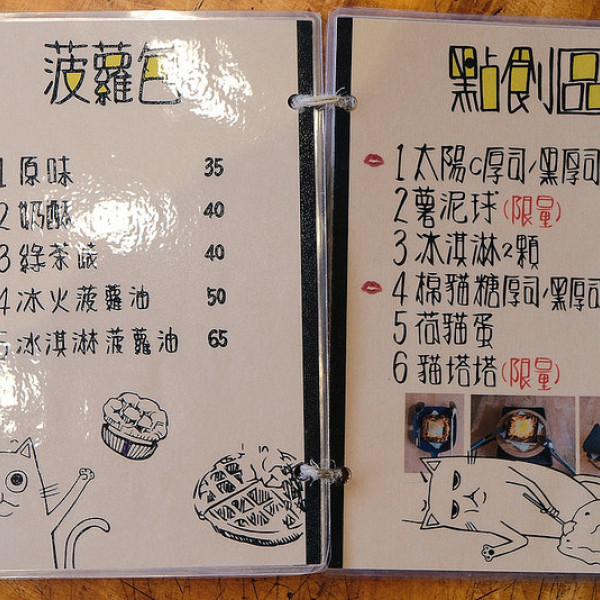 菠蘿包
1 原味 35
2 奶酥 40
3 綠茶 40
4 冰火菠蘿油 50
5 冰淇淋菠蘿油 65
點創品
1 太陽C厚司/黑厚司
2 薯泥球(限量)
3 冰淇淋2顆
4 棉貓糖厚司/黑厚司
5 荷貓蛋
6 貓塔塔(限量)